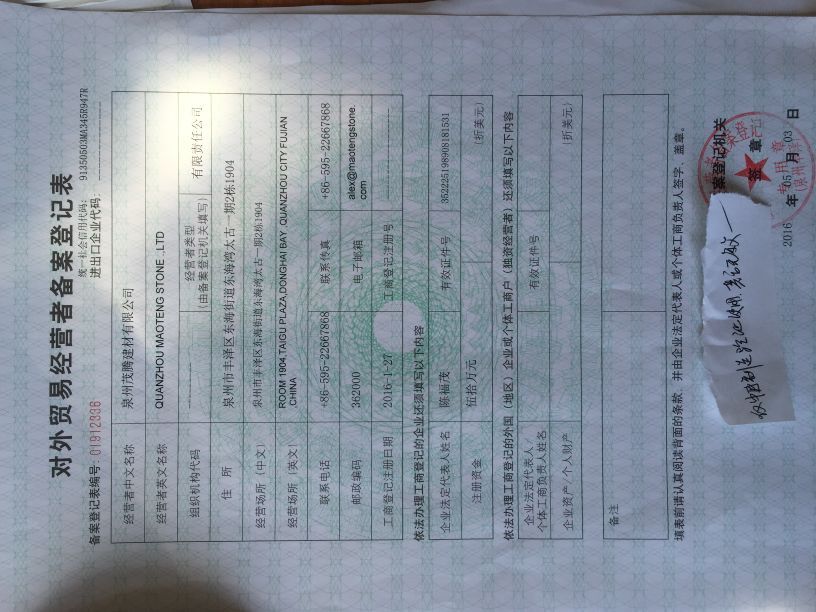 对外贸易经营者备案登记表
统一社会信用代码: 91350503MA345R947R
备案登记表编号: 01912336
进出口企业代码: ____________
经营者中文名称 泉州茂腾建材有限公司
经营者英文名称 QUANZHOU MAOTENG STONE .,LTD
组织机构代码 ———— 经营者类型 (由备案登记机关填写) 有限责任公司
住 所 泉州市丰泽区东海街道东海湾太古一期2栋1904
经营场所 (中文) 泉州市丰泽区东海街道东海湾太古一期2栋1904
经营场所 (英文) ROOM 1904,TAIGU PLAZA,DONGHAI BAY ,QUANZHOU CITY FUJIAN
,CHINA
联系电话 +86-595-22667868 联系传真 +86-595-22667868
邮政编码 362000 电子邮箱 alex@maotengstone.
com
工商登记注册日期 2016-1-27 工商登记注册号 ————
依法办理工商登记的企业还须填写以下内容
企业法定代表人姓名 陈福茂 有效证件号 352225198908181531
注册资金 伍拾万元 (折美元)
依法办理工商登记的外国 (地区) 企业或个体工商户 (独资经营者) 还须填写以下内容
企业法定代表人/
个体工商负责人姓名 有效证件号
企业资产/个人财产 (折美元)
备注
填表前请认真阅读背面的条款, 并由企业法定代表人或个体工商负责人签字、盖章。
案登记机关
签 章
2016 年 05 月 03 日